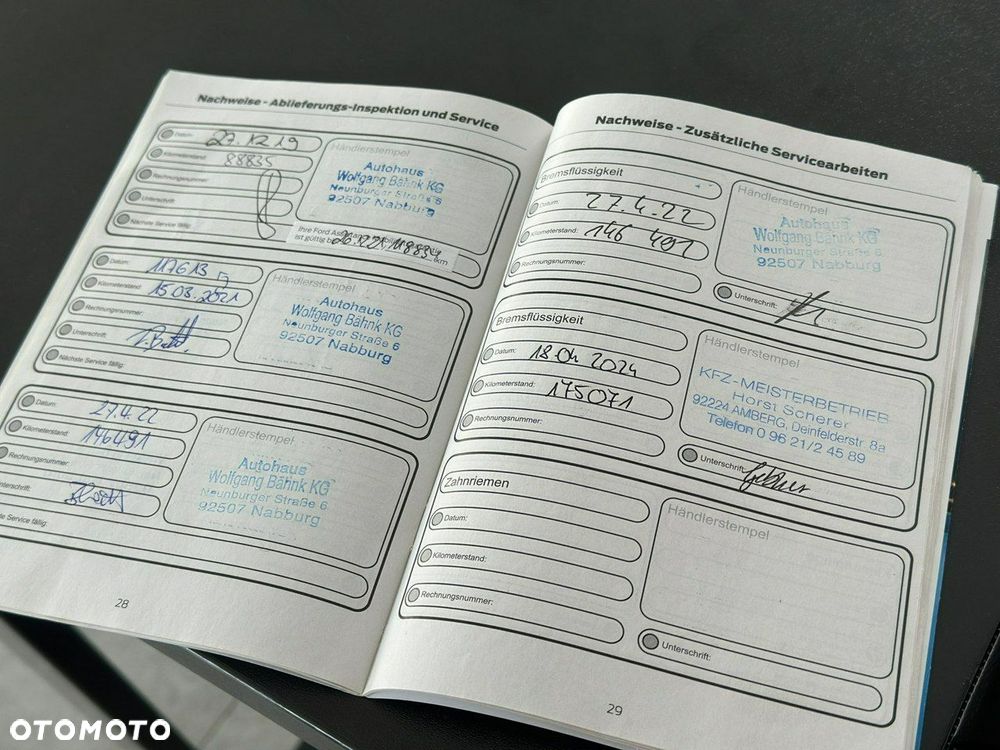 Nachweise - Ablieferungs-Inspektion und Service
Datum: 27.12.19
Kilometerstand: 88835
Rechnungsnummer:
Unterschrift:
Nächste Service fällig:
Händlerstempel
Autohaus
Wolfgang Bähnk KG
Neunburger Straße 6
92507 Nabburg
Ihre Ford
ist gültig
km
Datum: 117613
Kilometerstand: 15.03.2021
Rechnungsnummer:
Unterschrift:
Nächste Service fällig:
Händlerstempel
Autohaus
Wolfgang Bähnk KG
Neunburger Straße 6
92507 Nabburg
Datum: 27.4.22
Kilometerstand: 146491
Rechnungsnummer:
Unterschrift:
Service fällig:
Händlerstempel
Autohaus
Wolfgang Bähnk KG
Neunburger Straße 6
92507 Nabburg
28
Nachweise - Zusätzliche Servicearbeiten
Bremsflüssigkeit
Datum: 27.4.22
Kilometerstand: 146 491
Rechnungsnummer:
Händlerstempel
Autohaus
Wolfgang Bähnk KG
Neunburger Straße 6
92507 Nabburg
Unterschrift:
Bremsflüssigkeit
Datum: 18.04.2024
Kilometerstand: 175071
Rechnungsnummer:
Händlerstempel
KFZ-MEISTERBETRIEB
Horst Scherer
92224 AMBERG, Deinfelderstr. 8a
Telefon 0 96 21/2 45 89
Unterschrift:
Zahnriemen
Datum:
Kilometerstand:
Rechnungsnummer:
Händlerstempel
Unterschrift:
29
OTOMOTO